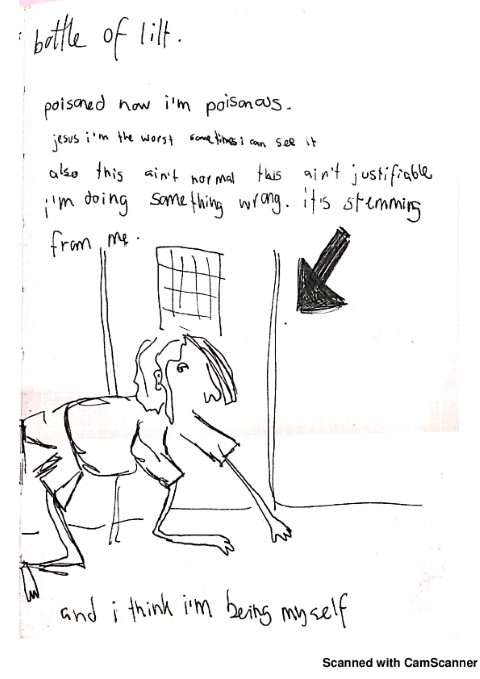 bottle of lilt.
poisoned now i'm poisonous.
jesus i'm the worst sometimes i can see it
also this ain't normal this ain't justifiable
i'm doing something wrong. it is stemming
from me.
and i think i'm being myself
Scanned with CamScanner